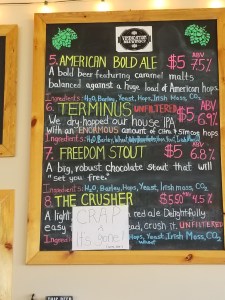 5. AMERICAN BOLD ALE $5 ABV 7.5%
A bold beer featuring caramel malts
balanced against a huge load of American hops.
Ingredients: H₂O, Barley, Yeast, Hops, Irish Moss, CO₂
6. TERMINUS UNFILTERED $5 ABV 6.9%
We dry-hopped our house IPA
with an "ENORMOUS" amount of Citra & Simcoe hops
Ingredients: H₂O, Barley, Wheat, Hops, Yeast, Irish Moss, CO₂
7. FREEDOM STOUT $5 ABV 6.8%
A big, robust chocolate stout that will
"set you free."
Ingredients: H₂O, Barley, Hops, Yeast, Irish Moss, CO₂
8. THE CRUSHER $5.50 ABV 4.5%
A light, red ale. Delightfully
easy crush it. UNFILTERED
Yeast, Irish Moss, CO₂
wheat
CRAP
It's gone!